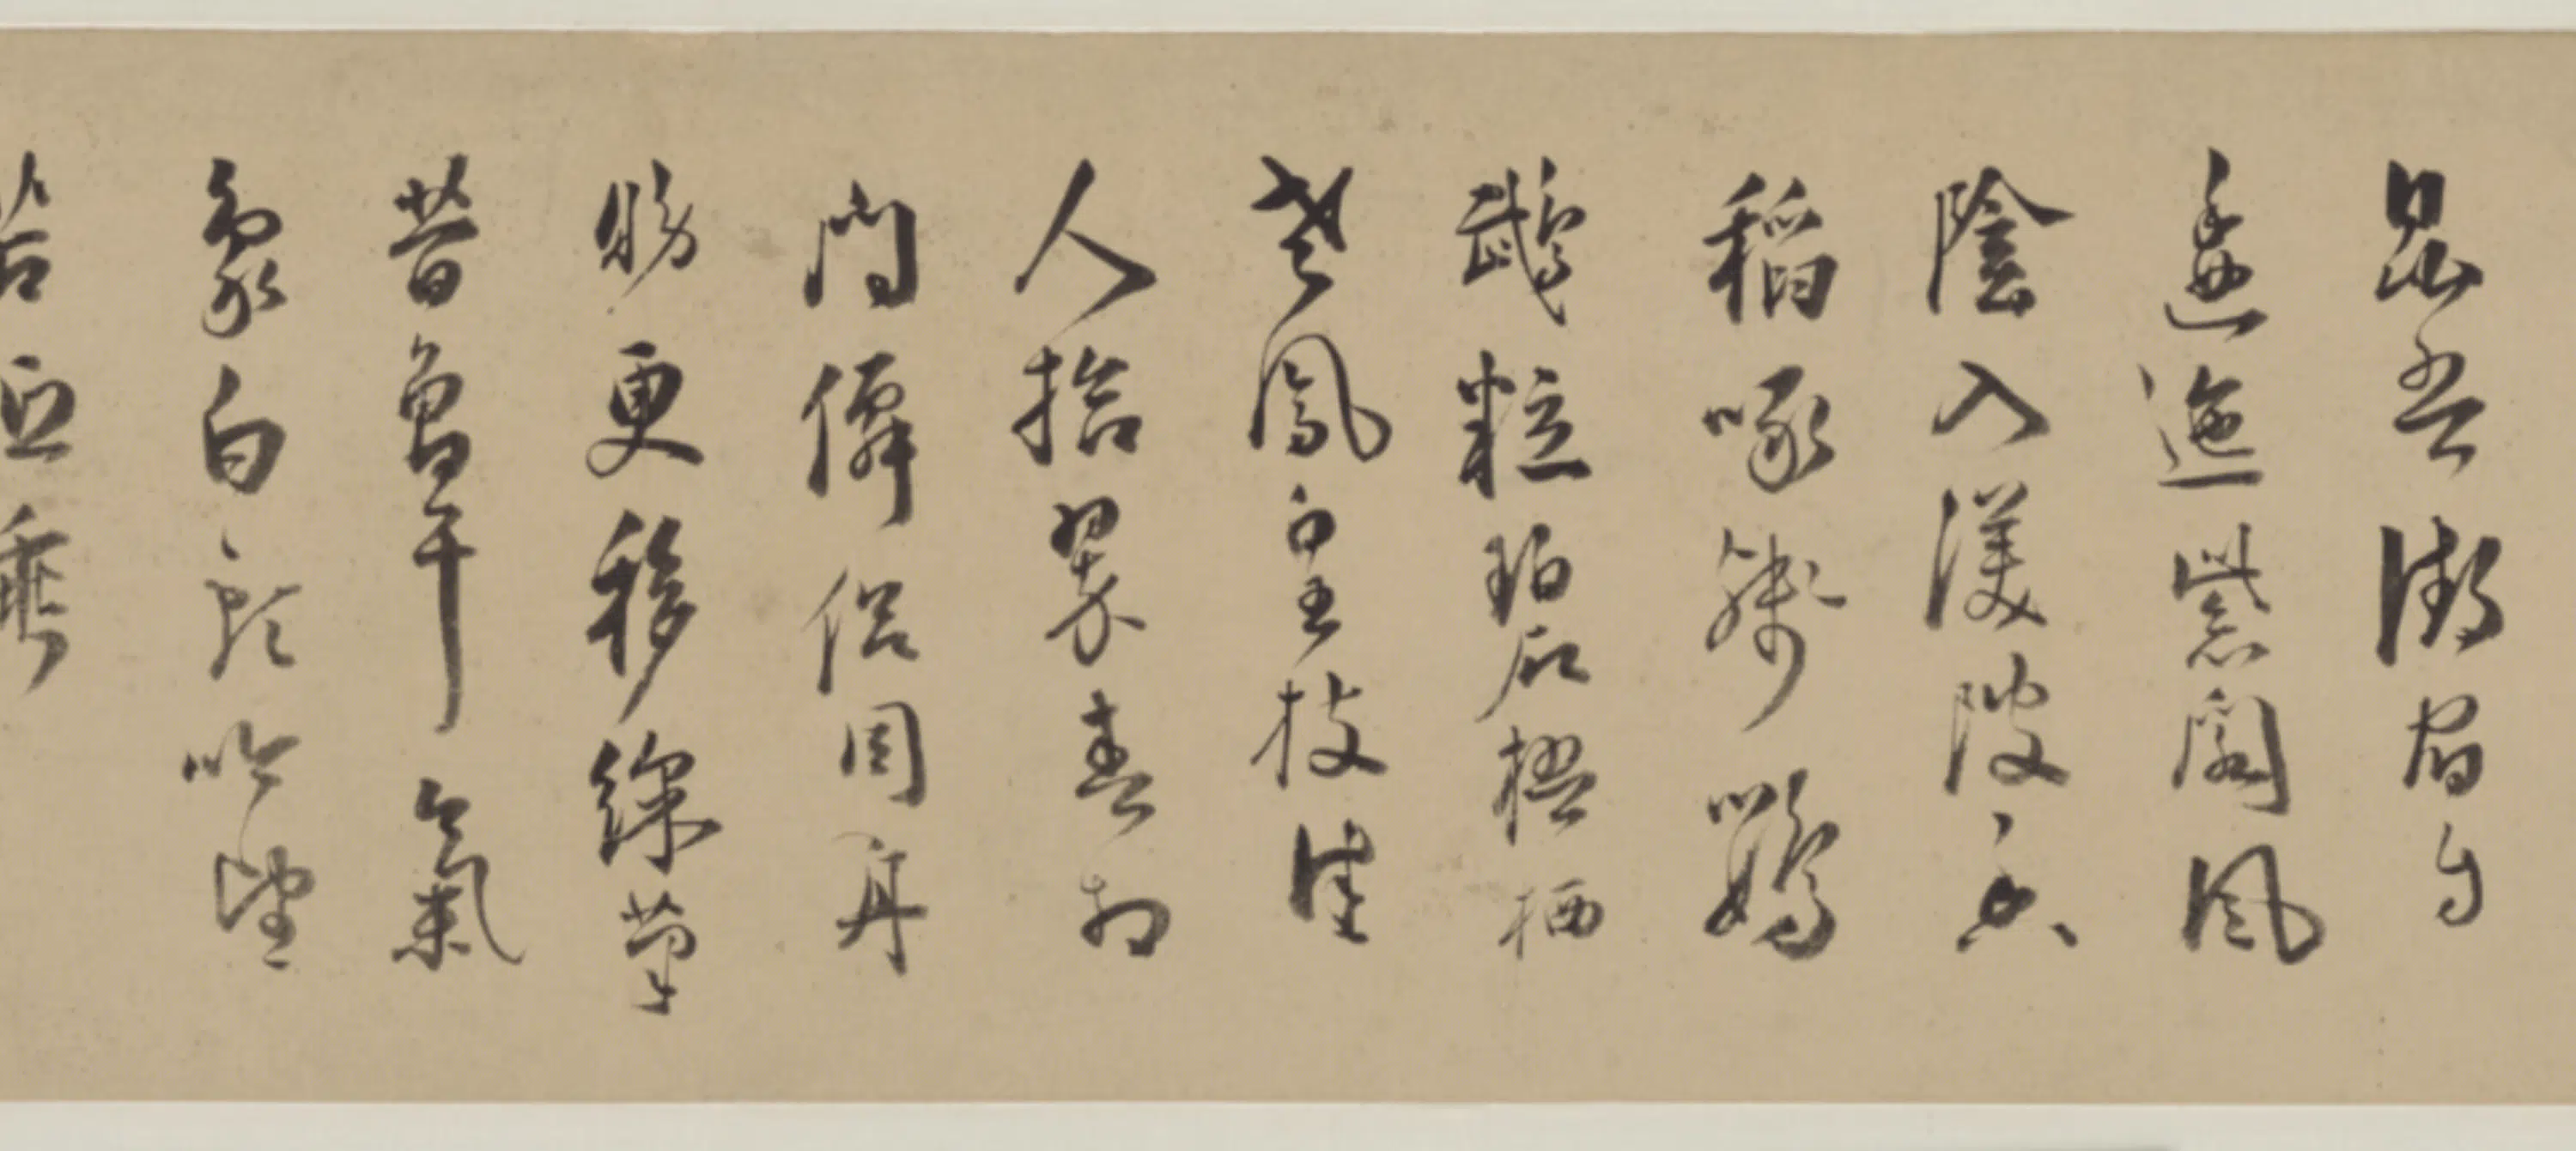 昆吾御宿自
逶迤紫閣風
陰入渼陂香
稻啄殘鸚
鵡粒碧梧栖
老鳳皇枝佳
人拾翠春相
問僊侶同舟
晚更移綵筆
昔曾干氣
象白頭吟望
苦低垂